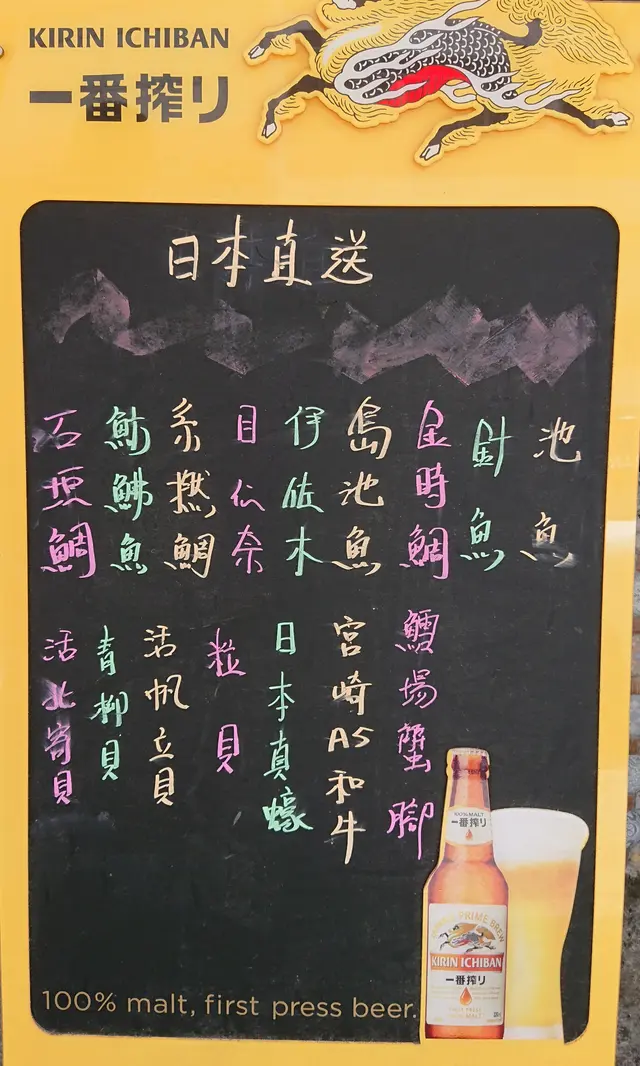 KIRIN ICHIBAN
一番搾り
日本直送
池魚
針魚
金時鯛
島池魚
伊佐木
目仁奈
糸撚鯛
魴鮄魚
石垣鯛
鱈場蟹腳
宮崎A5和牛
日本真蠔
粒貝
活帆立貝
青柳貝
活北寄貝
100% MALT
一番搾り
PRIME BREW
KIRIN ICHIBAN
一番搾り
100% malt, first press beer.